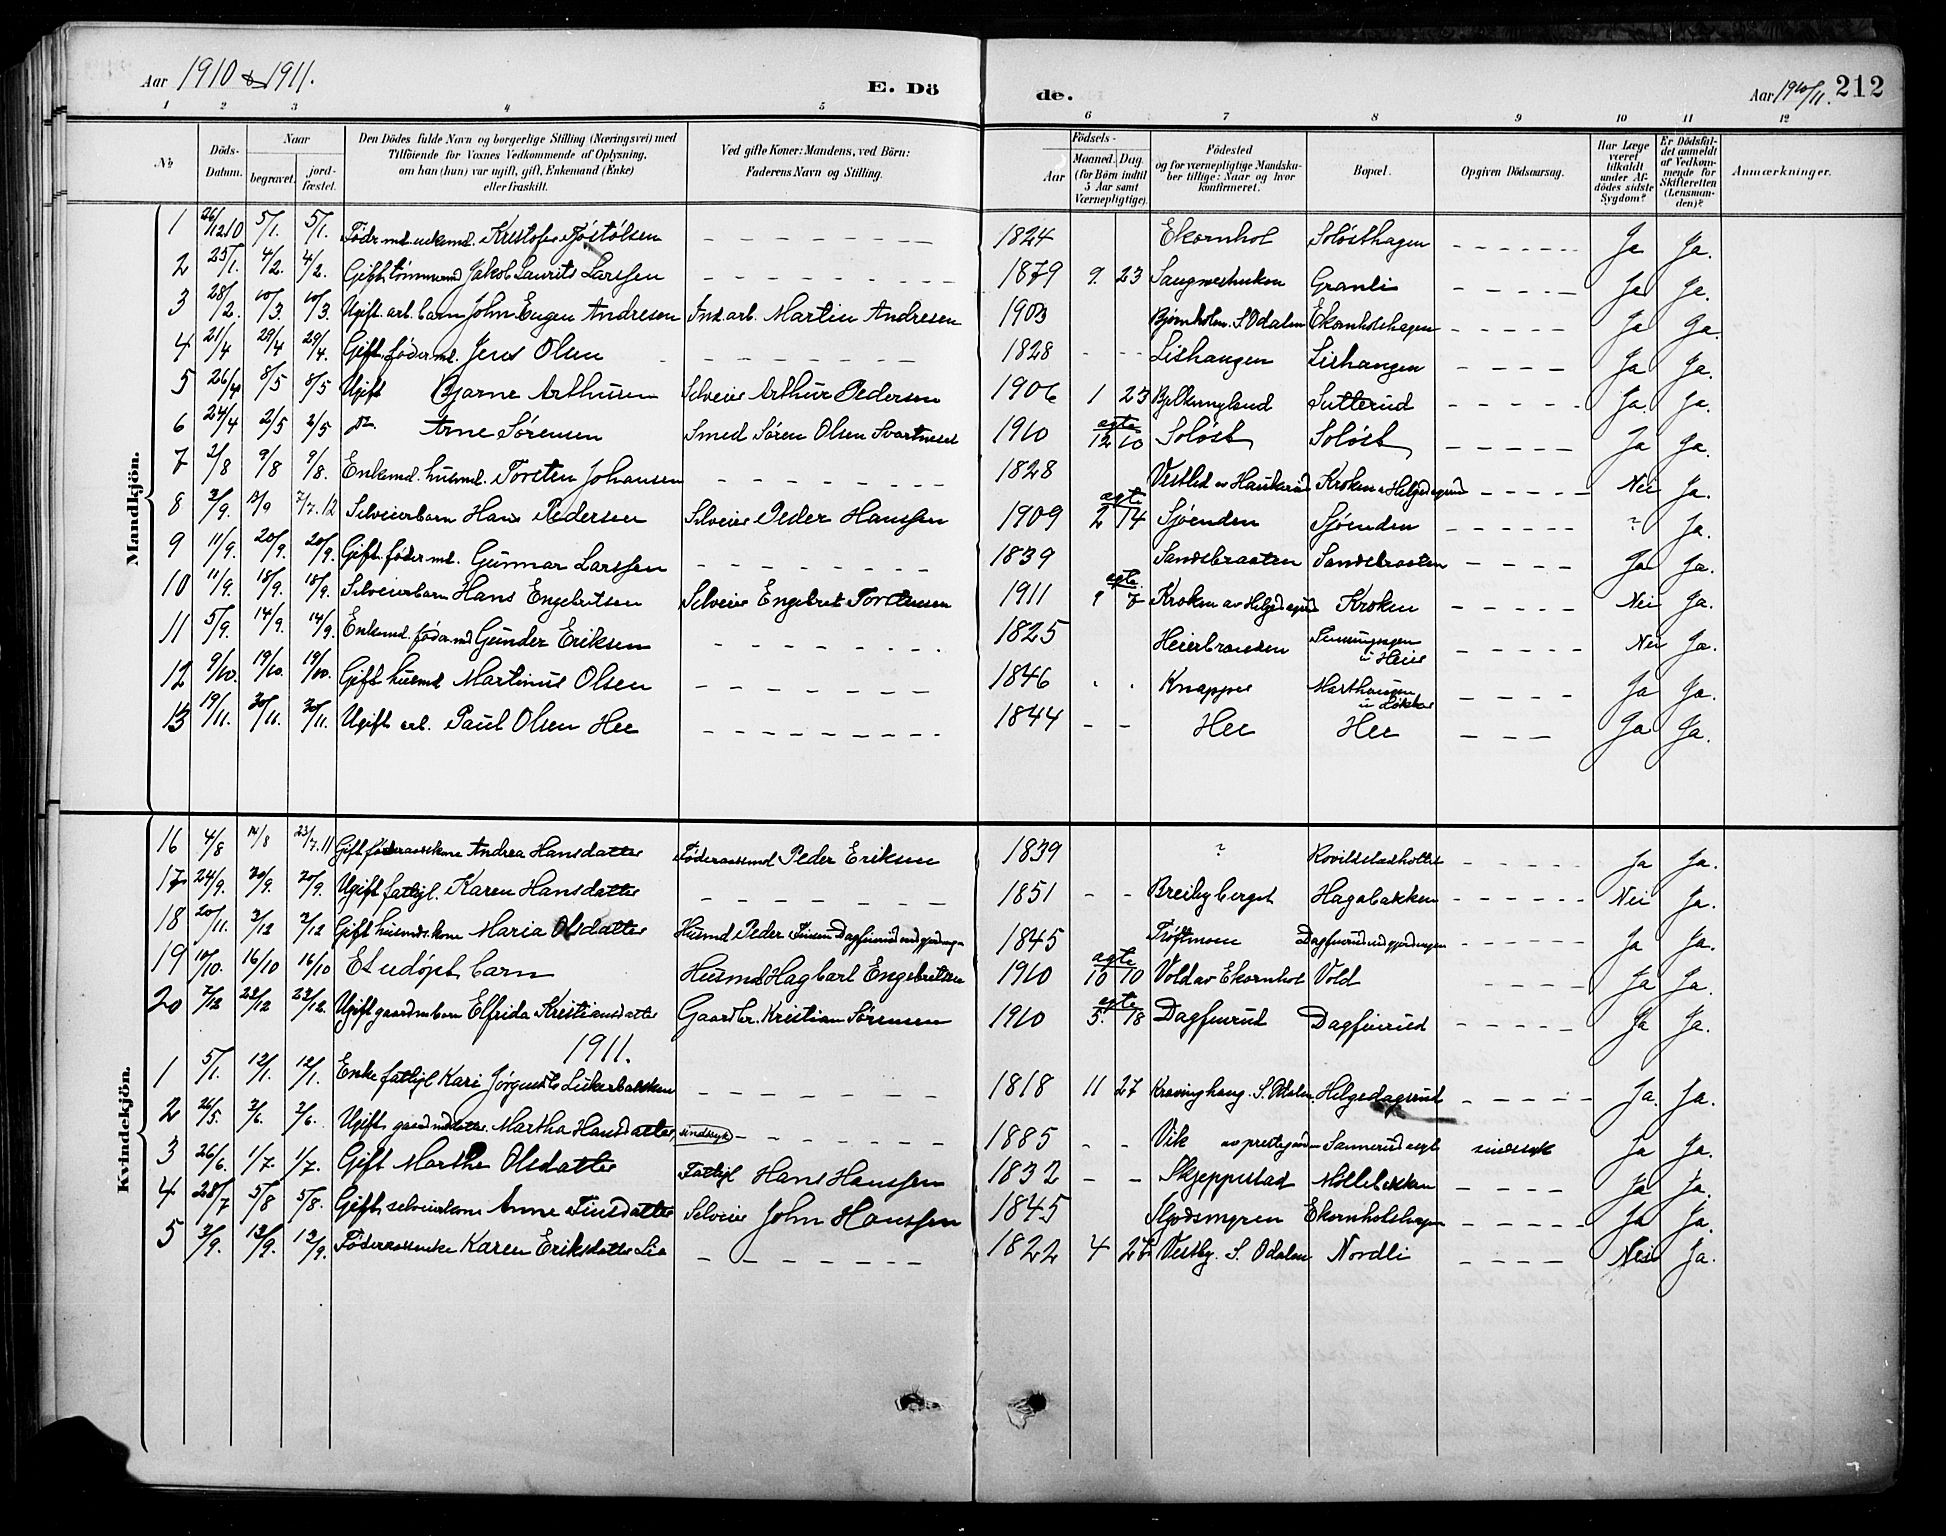 Aar 1910 & 1911.
E. Dö
de.
Aar 1910/11. 212
1 2 3 4 5 6 7 8 9 10 11 12
No
Döds-Datum.
Naar
begravet.
jord-fæstet.
Den Dödes fulde Navn og borgerlige Stilling (Næringsvei) med
Tilföiende for Voxnes Vedkommende af Oplysning,
om han (hun) var ugift, gift, Enkemand (Enke)
eller fraskilt.
Ved gifte Koner: Mandens, ved Börn:
Faderens Navn og Stilling.
Födsels-
Aar
Maaned. Dag.
(for Börn indtil
5 Aar samt
Værnepligtige).
Födested
og for værnepligtige Mandska-
ber tillige: Naar og hvor
konfirmeret.
Bopæl.
Opgiven Dödsaarsag.
Har Læge
været
tilkaldt
under Af-
dödes sidste
Sygdom?
Er Dödsfal-
det anmeldt
af Vedkom-
mende for
Skifteretten
(Lensman-
den)?
Anmærkninger.
Mandkjön.
1 26/12 10 5/1. 5/1. Födr.md. enkemd. Kristofer Tjöstölsen 1824 Ekornhol Solösthagen Ja Ja.
2 25/1. 4/2. 4/2. Gift tömmermd Jakob Laurits Larssen 1879 9. 23 Granli Ja Ja.
3 28/2. 10/3. 10/3. Ugift. arb. barn John Eugen Andresen Ind. arb. Martin Andresen 1903 Bjørnholm. S. Odalen Ekornholshagen Ja Ja.
4 21/4 29/4 29/4. Gift föder.md. Jens Olsen 1828 Lishaugen Lishaugen Ja Ja.
5 26/4 8/5 8/5 Ugift Bjarne Arthursen Selveier Arthur Pedersen 1906 1 23 Sutterud Ja. Ja.
6 24/4 2/5 2/5 Do. Arne Sörensen Smed Sören Olsen Svartneset 1910 ægte 12 10 Solöst Solöst Ja Ja.
7 2/8 9/8 9/8. Enkemd. husmd. Torsten Johansen 1828 Kroken Nei Ja.
8 3/9. 13/9 7/7.12 Selveierbarn Hans Pedersen Selveier Peder Hanssen 1909 ægte 2 14 Sjöenden Sjöenden ? Ja.
9 11/9. 20/9. 20/9. Gift. föder.md. Gunnar Larssen 1839 Sandsbraaten Sandsbraaten Ja Ja.
10 11/9. 18/9. 18/9. Selveierbarn Hans Engebritsen Selveier Engebret Torstensen 1911 ægte Kroken av Helgedagsrud Kroken Nei Ja.
11 5/9. 14/9. 14/9. Enkemd. föder.md Gunder Eriksen 1825 Heierbraaten u Heie Nei Ja.
12 9/10. 19/10. 19/10. Gift husmd Martinus Olsen 1846 Knapper u Løkker Ja Ja.
13 19/11. 30/11. 30/11. Ugift arb. Paul Olsen Hee 1844 Hee Hee Ja Ja.
Kvindekjön.
16 4/8 14/8 23/7.11 Gift föderaadskone Andrea Hansdatter Föderaadsmd Peder Eriksen 1839 ? Ja Ja.
17 24/9. 30/9. 30/9. Ugift fattigl. Karen Hansdatter 1851 Breibyberget Hagabakken Nei Ja.
18 20/11. 3/12 3/12 Gift husmds.kone Maria Olsdatter Husmd Peder 1845 Tröftmoen Ja Ja.
19 10/10. 16/10 16/10 Et udöpt barn Husmd Hagbart Engebretsen 1910 ægte 10 10 Vold av Ekornhol Vold Ja Ja.
20 7/12 22/12 22/12. Ugift gaardm.barn Elfrida Kristiansdatter Gaardbr. Kristian Sörensen 1910 ægte 5. 18 Dagfinrud Dagfinrud Ja Ja.
1911.
1 5/1. 12/1. 12/1. Enke fattigl Kari 1818 11 27 S. Odalen Helgedagsrud Ja. Ja.
2 26/5. 2/6. 2/6. Ugift, Martha Hansdatter sindssyk 1885 Vik av prestegaarden Sannerud sindssyk Ja Ja.
3 26/6. 1/7. 1/7. Gift Marthe Olsdatter Fattigl Hans Hanssen 1832 Skjeppstad Möllebakken Ja Ja.
4 28/7 5/8 5/8. Gift selveierkone Anne Finsdatter Selveier John Hanssen 1845 Ekornholshagen Ja Ja.
5 3/9. 12/9. 12/9. Föderaadsenke Karen Eriksdatter Lie 1822 4 Vestby. S. Odalen Nordli Nei Ja.